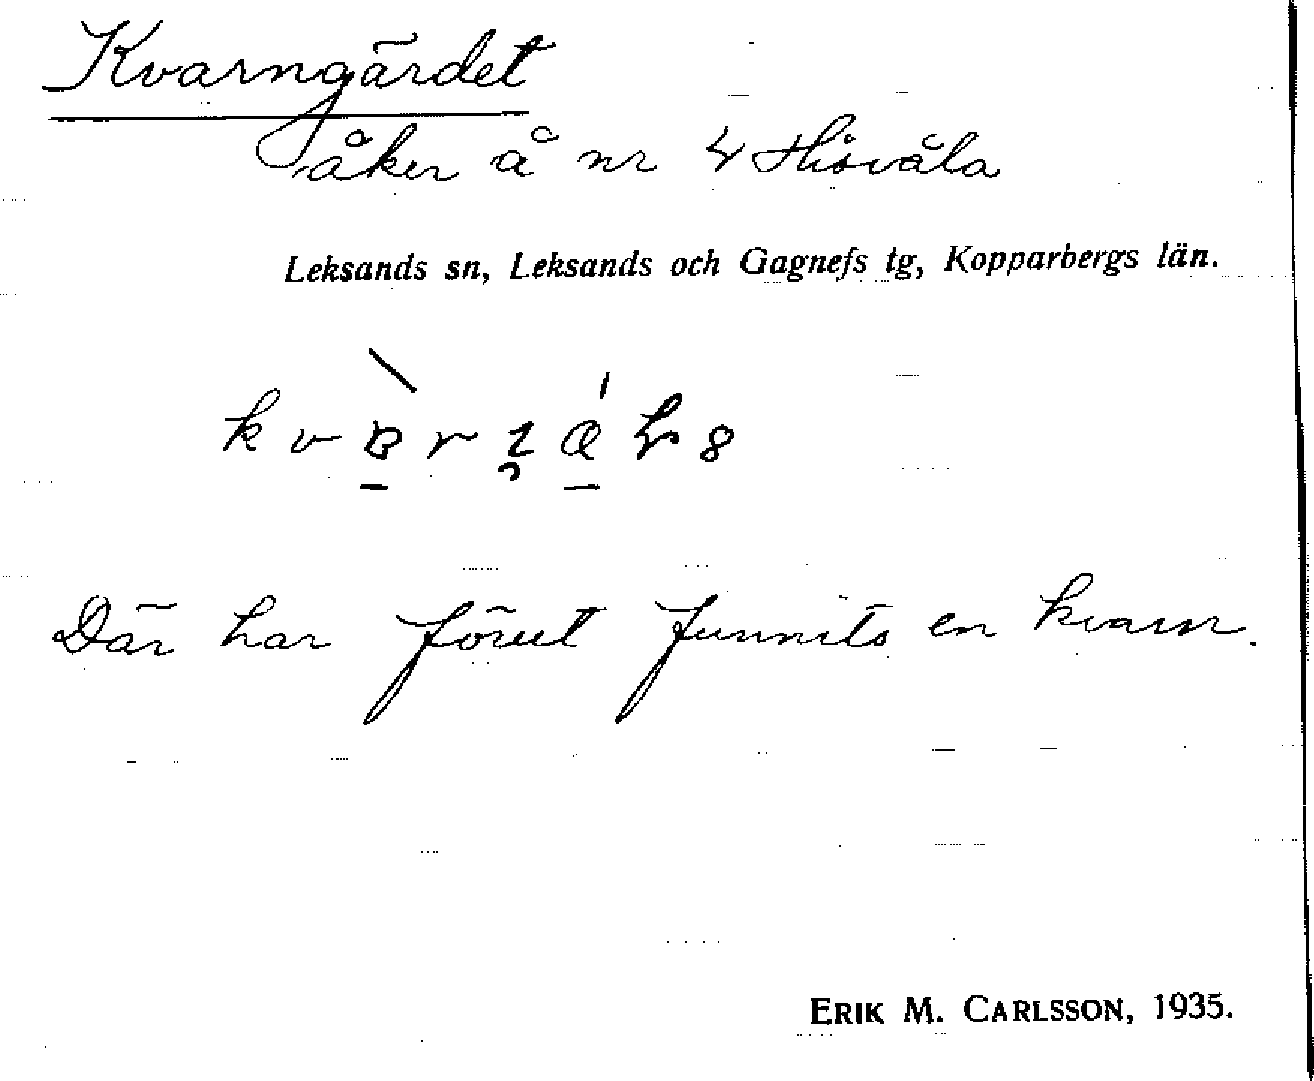 Kvarngärdet
åker å nr 4 Hisvåla
Leksands sn, Leksands och Gagnefs tg, Kopparbergs län.
Där har förut funnits en kvarn.
ERIK M. CARLSSON, 1935.